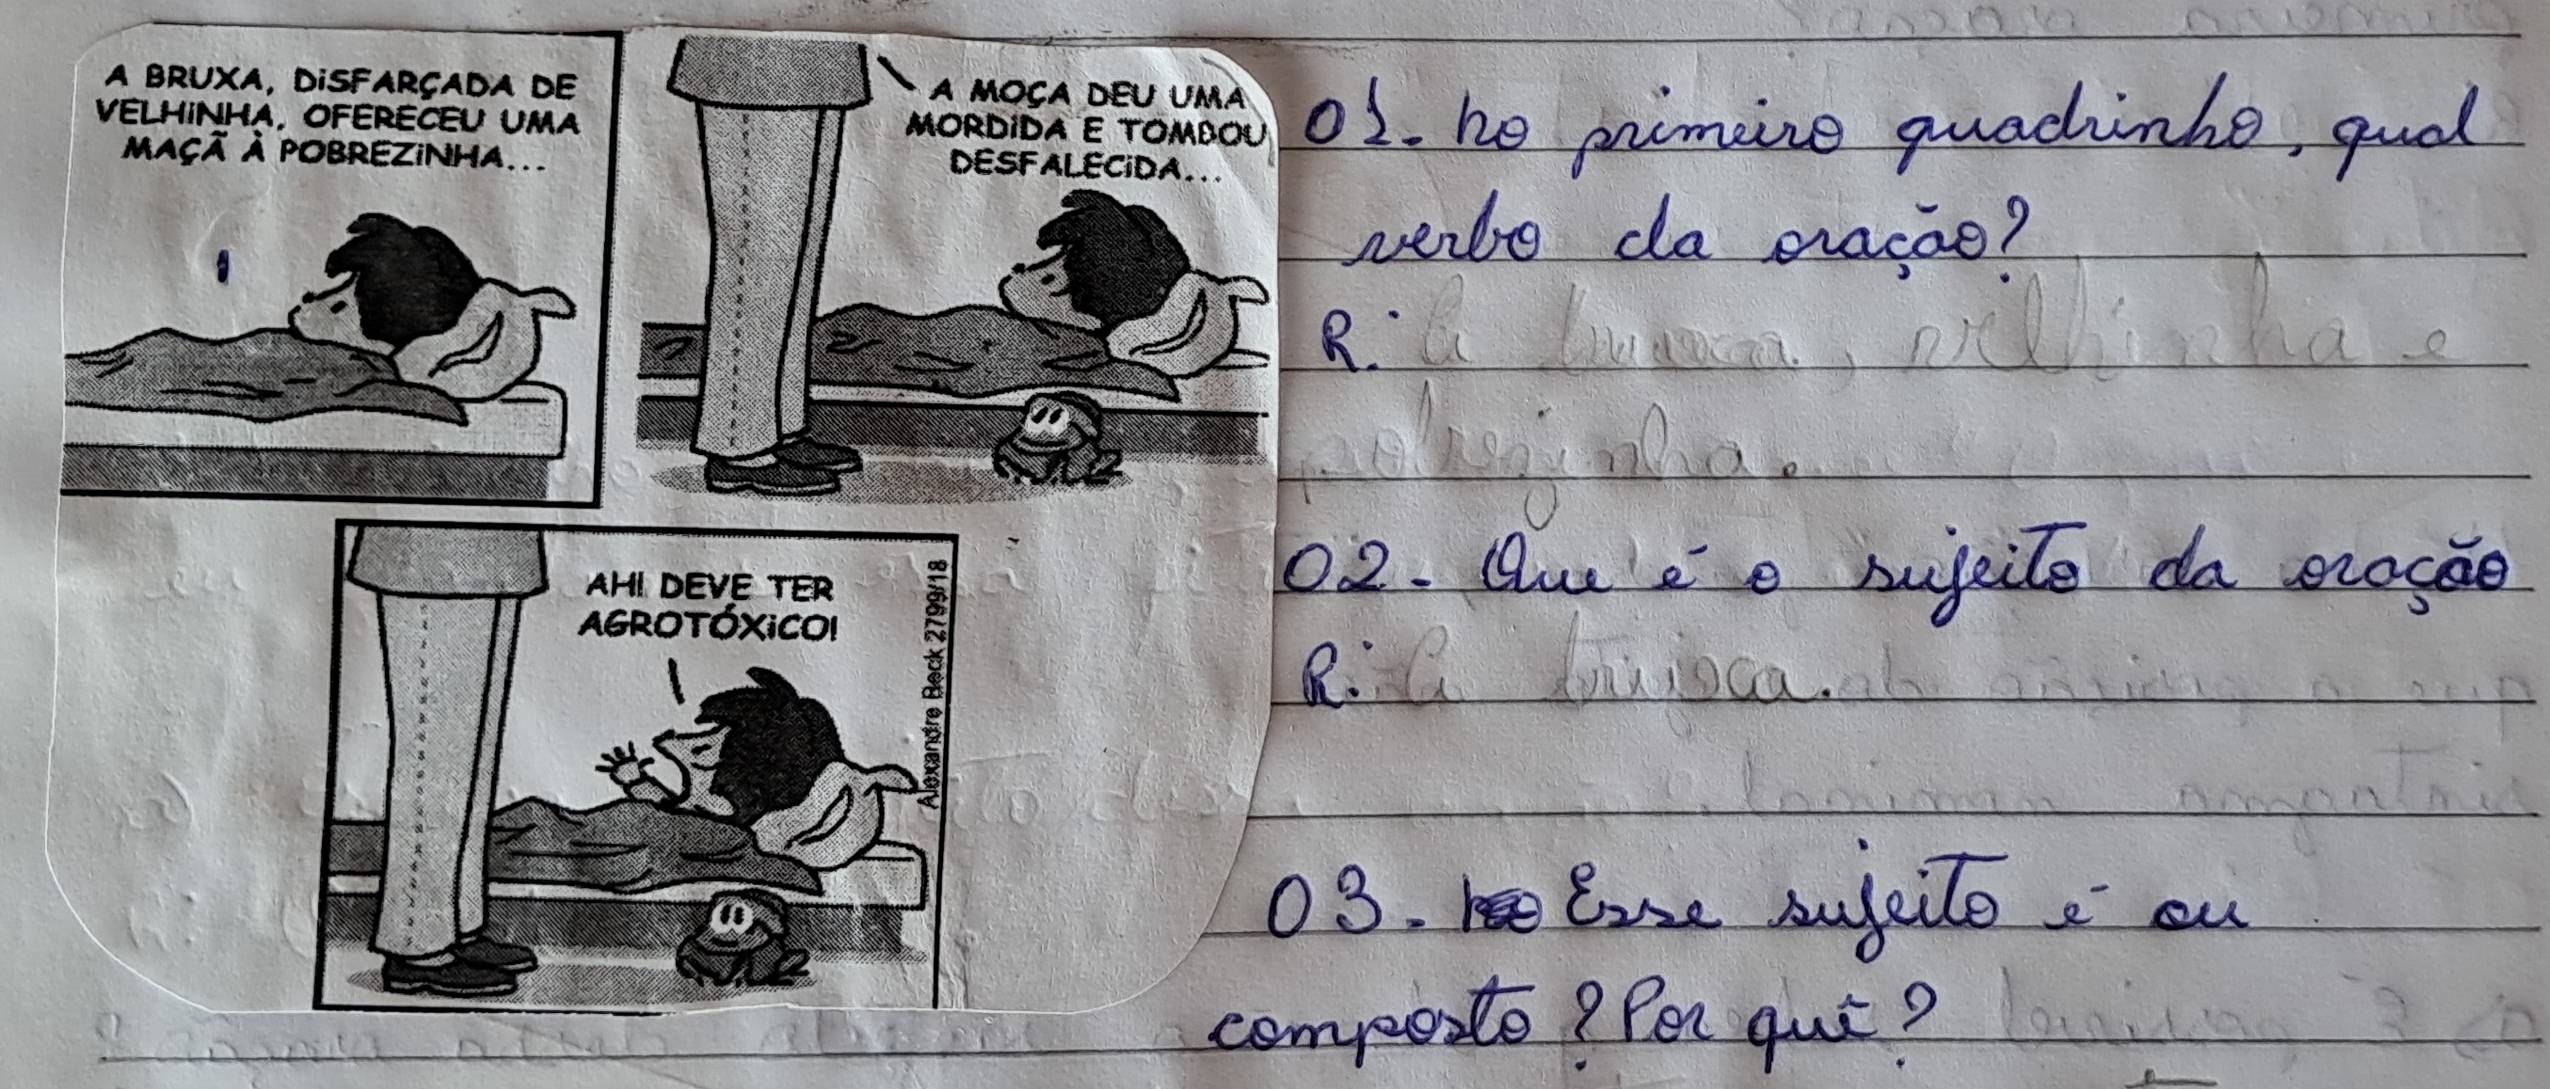 A BRUXA, DiSFARÇADA DE
VELHiNHA, OFERECEU UMA
MAÇÃ À POBREZiNHA...
A MOÇA DEU UMA
MORDiDA E TOMBOU
DESFALECiDA...
AH! DEVE TER
AGROTÓXiCO!
Alexandre Beck 2799/18
01- No primeiro quadrinho, qual
verbo da oração?
R: A bruxa, velhinha e
pobrezinha.
02- Que é o sujeito da oração
R: A bruxa.
03- Esse sujeito é ou
composto? Por quê?